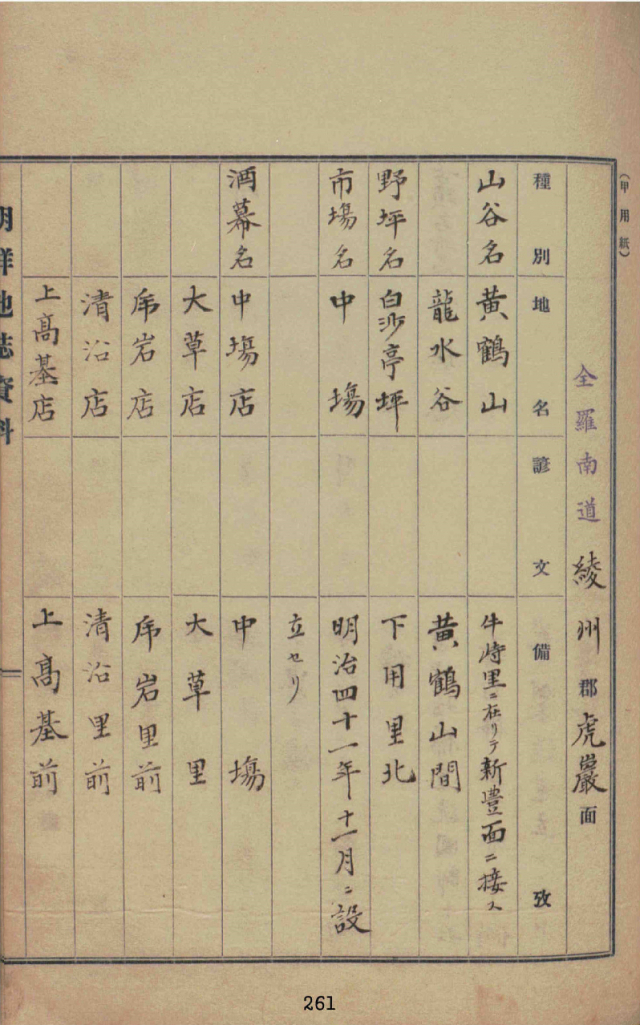 (甲用紙)
全羅南道 綾州郡虎巖面
種別 地名 諺文 備攷
山谷名 黄鶴山 牛峙里ニ在リテ新豊面ニ接ス
龍水谷 黄鶴山間
野坪名 白沙亭坪 下用里北
市場名 中塲 明治四十一年十一月ニ設
立セリ
酒幕名 中塲店 中塲
大草店 大草里
岩店 岩里前
清沿店 清沿里前
上髙基店 上髙基前
朝鮮地誌資料
261